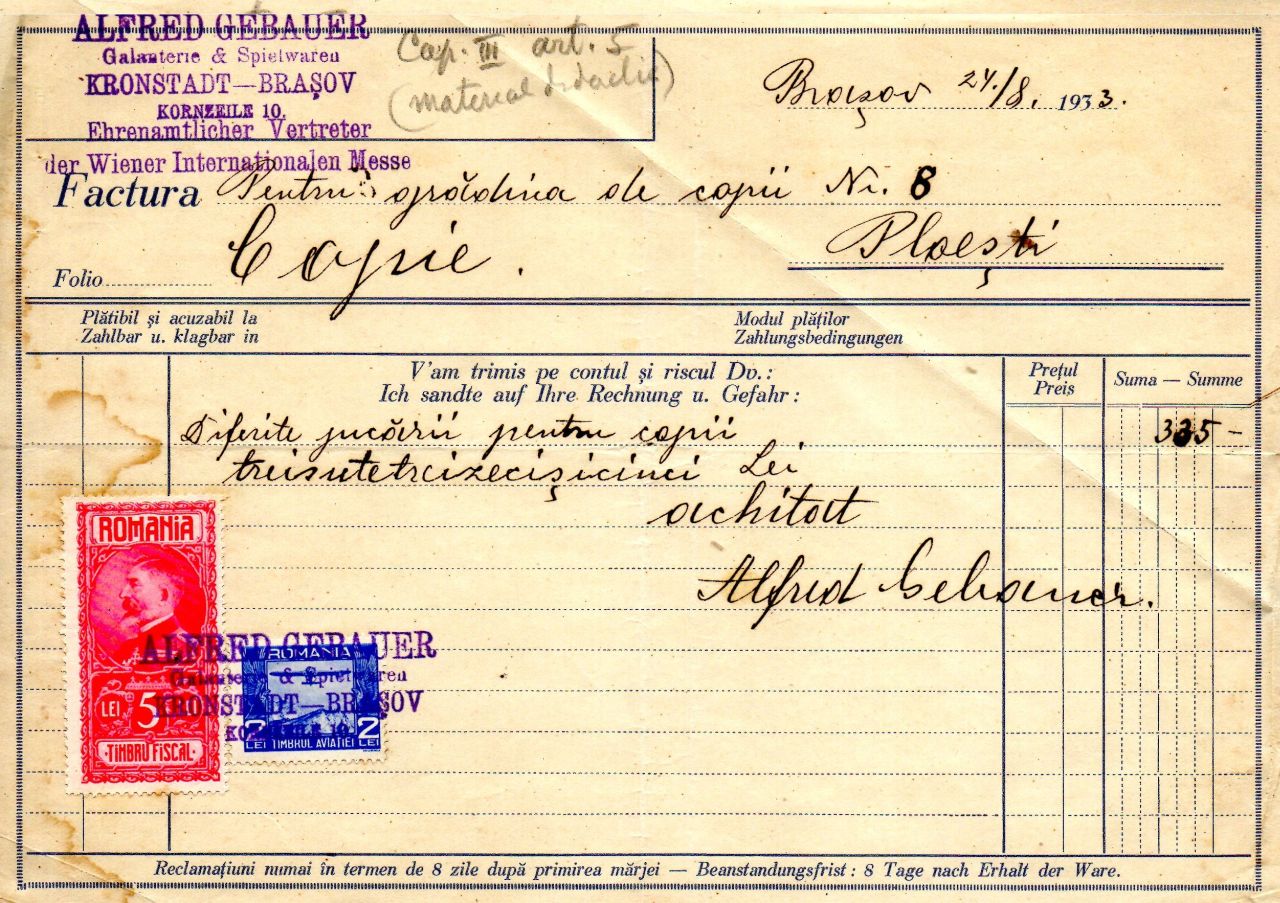 ALFRED GEBAUER
Galanterie & Spielwaren
KRONSTADT—BRAȘOV
KORNZEILE 10.
Ehrenamtlicher Vertreter
der Wiener Internationalen Messe
Cap. III art. 5
(material didactic)
Brașov 24./8. 1933.
Factura Pentru grădina de copii Nr. 8
Copie.
Ploești
Folio
Plătibil și acuzabil la
Zahlbar u. klagbar in
Modul plăților
Zahlungsbedingungen
V'am trimis pe contul și riscul Dv.:
Ich sandte auf Ihre Rechnung u. Gefahr:
Prețul
Preis
Suma — Summe
Diferite jucării pentru copii 335 –
treisutetreizecișicinci Lei
achitat
Alfred Gebauer.
ROMANIA
LEI 5
TIMBRU FISCAL
ALFRED GEBAUER
Galanterie & Spielwaren
KRONSTADT—BRAȘOV
KORNZEILE 10.
ROMANIA
2 2
LEI TIMBRUL AVIAȚIEI LEI
Reclamațiuni numai în termen de 8 zile după primirea mărjei — Beanstandungsfrist: 8 Tage nach Erhalt der Ware.